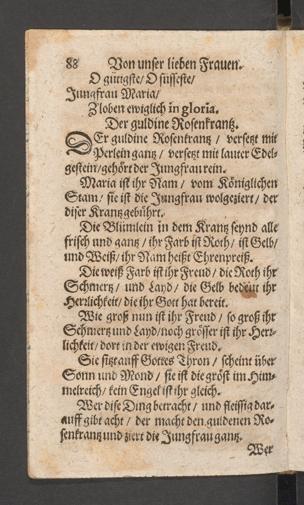 88 Von unser lieben Frauen.
O gütigste/ O süsseste/
Jungfrau Maria/
Z'loben ewiglich in gloria.
Der guldine Rosenkrantz.
DEr guldine Rosenkrantz / versetzt mit
Perlein gantz / versetzt mit lauter Edel-
gestein/gehört der Jungfrau rein.
Maria ist ihr Nam / vom Königlichen
Stam/ sie ist die Jungfrau wolgeziert/ der
diser Krantz gebührt.
Die Blümlein in dem Krantz seynd alle
frisch und gantz / ihr Farb ist Roth/ ist Gelb/
und Weiß/ ihr Nam heißt Ehrenpreiß.
Die weiß Farb ist ihr Freud / die Roth ihr
Schmertz / und Layd/ die Gelb bedeut ihr
Herzlichkeit/ die ihr Gott hat bereit.
Wie groß nun ist ihr Freud / so groß ihr
Schmertz und Layd/noch grösser ist ihr Herz-
lichkeit/ dort in der ewigen Freud.
Sie sitzt auff Gottes Thron / scheint über
Sonn und Mond / sie ist die gröst im Him-
melreich/ kein Engel ist ihr gleich.
Wer dise Ding betracht / und fleissig dar-
auff gibt acht / der macht den guldenen Ro-
senkrantz und ziert die Jungfrau gantz.
Wer